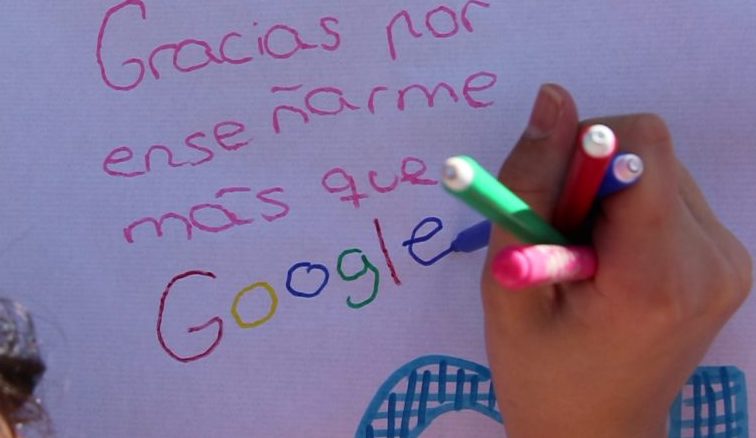 Gracias por
enseñarme
más que
Google